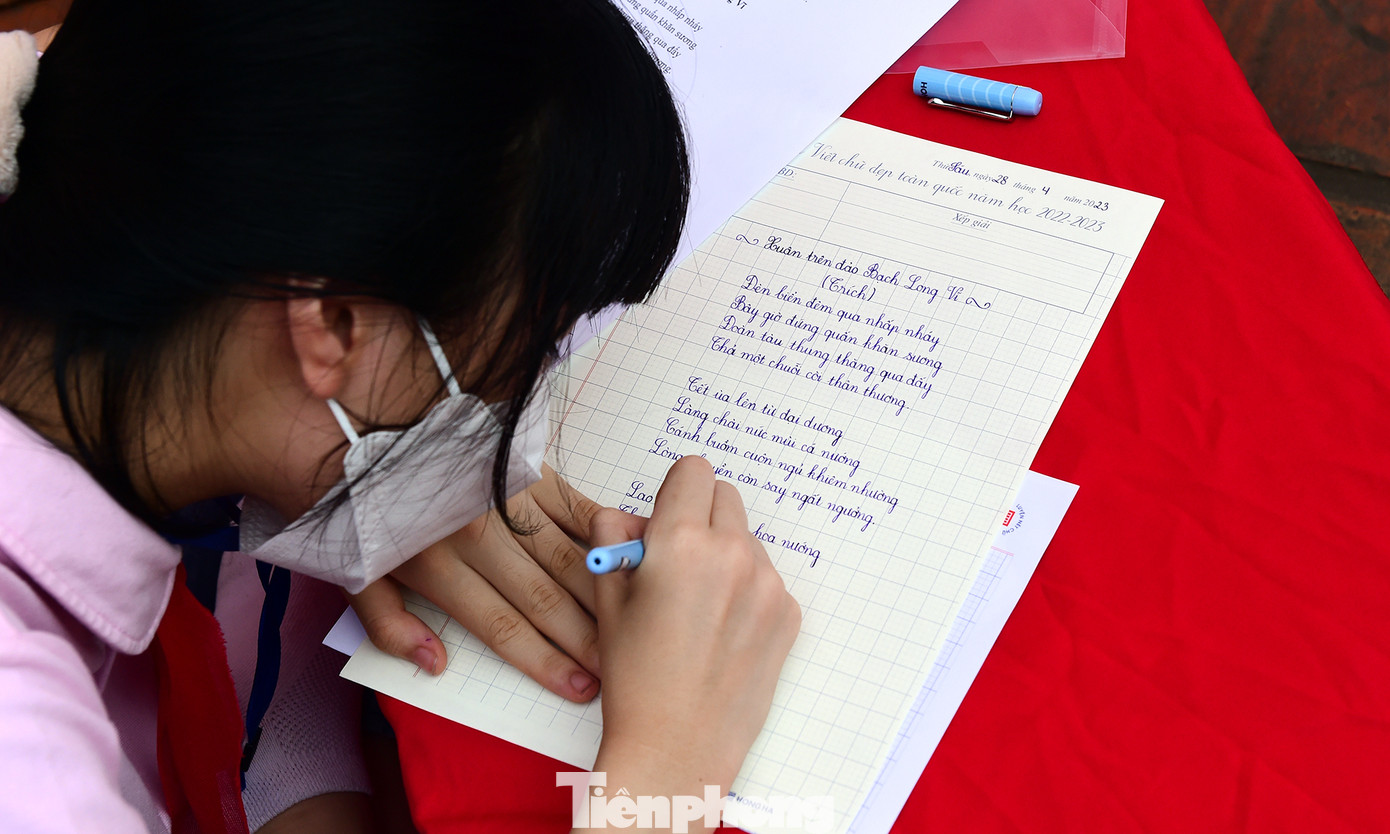 qua nhấp nháy
quần khăn sương
thăng qua đấy
Thứ Sáu ngày 28 tháng 4 năm 2023
Viết chữ đẹp toàn quốc năm học 2022-2023
BD:
Xếp giải
Xuân trên đảo Bạch Long Vĩ
(Trích)
Đèn biển đêm qua nhấp nháy
Bây giờ đứng quấn khăn sương
Đoàn tàu thung thăng qua đấy
Thả một chuỗi còi thân thương.
Tết ùa lên từ đại dương
Làng chài nức mùi cá nướng
Cánh buồm cuộn ngủ khiêm nhường
thuyền còn say ngất ngưởng.
Lao
hoa nướng
HONG HA
Tiền phong